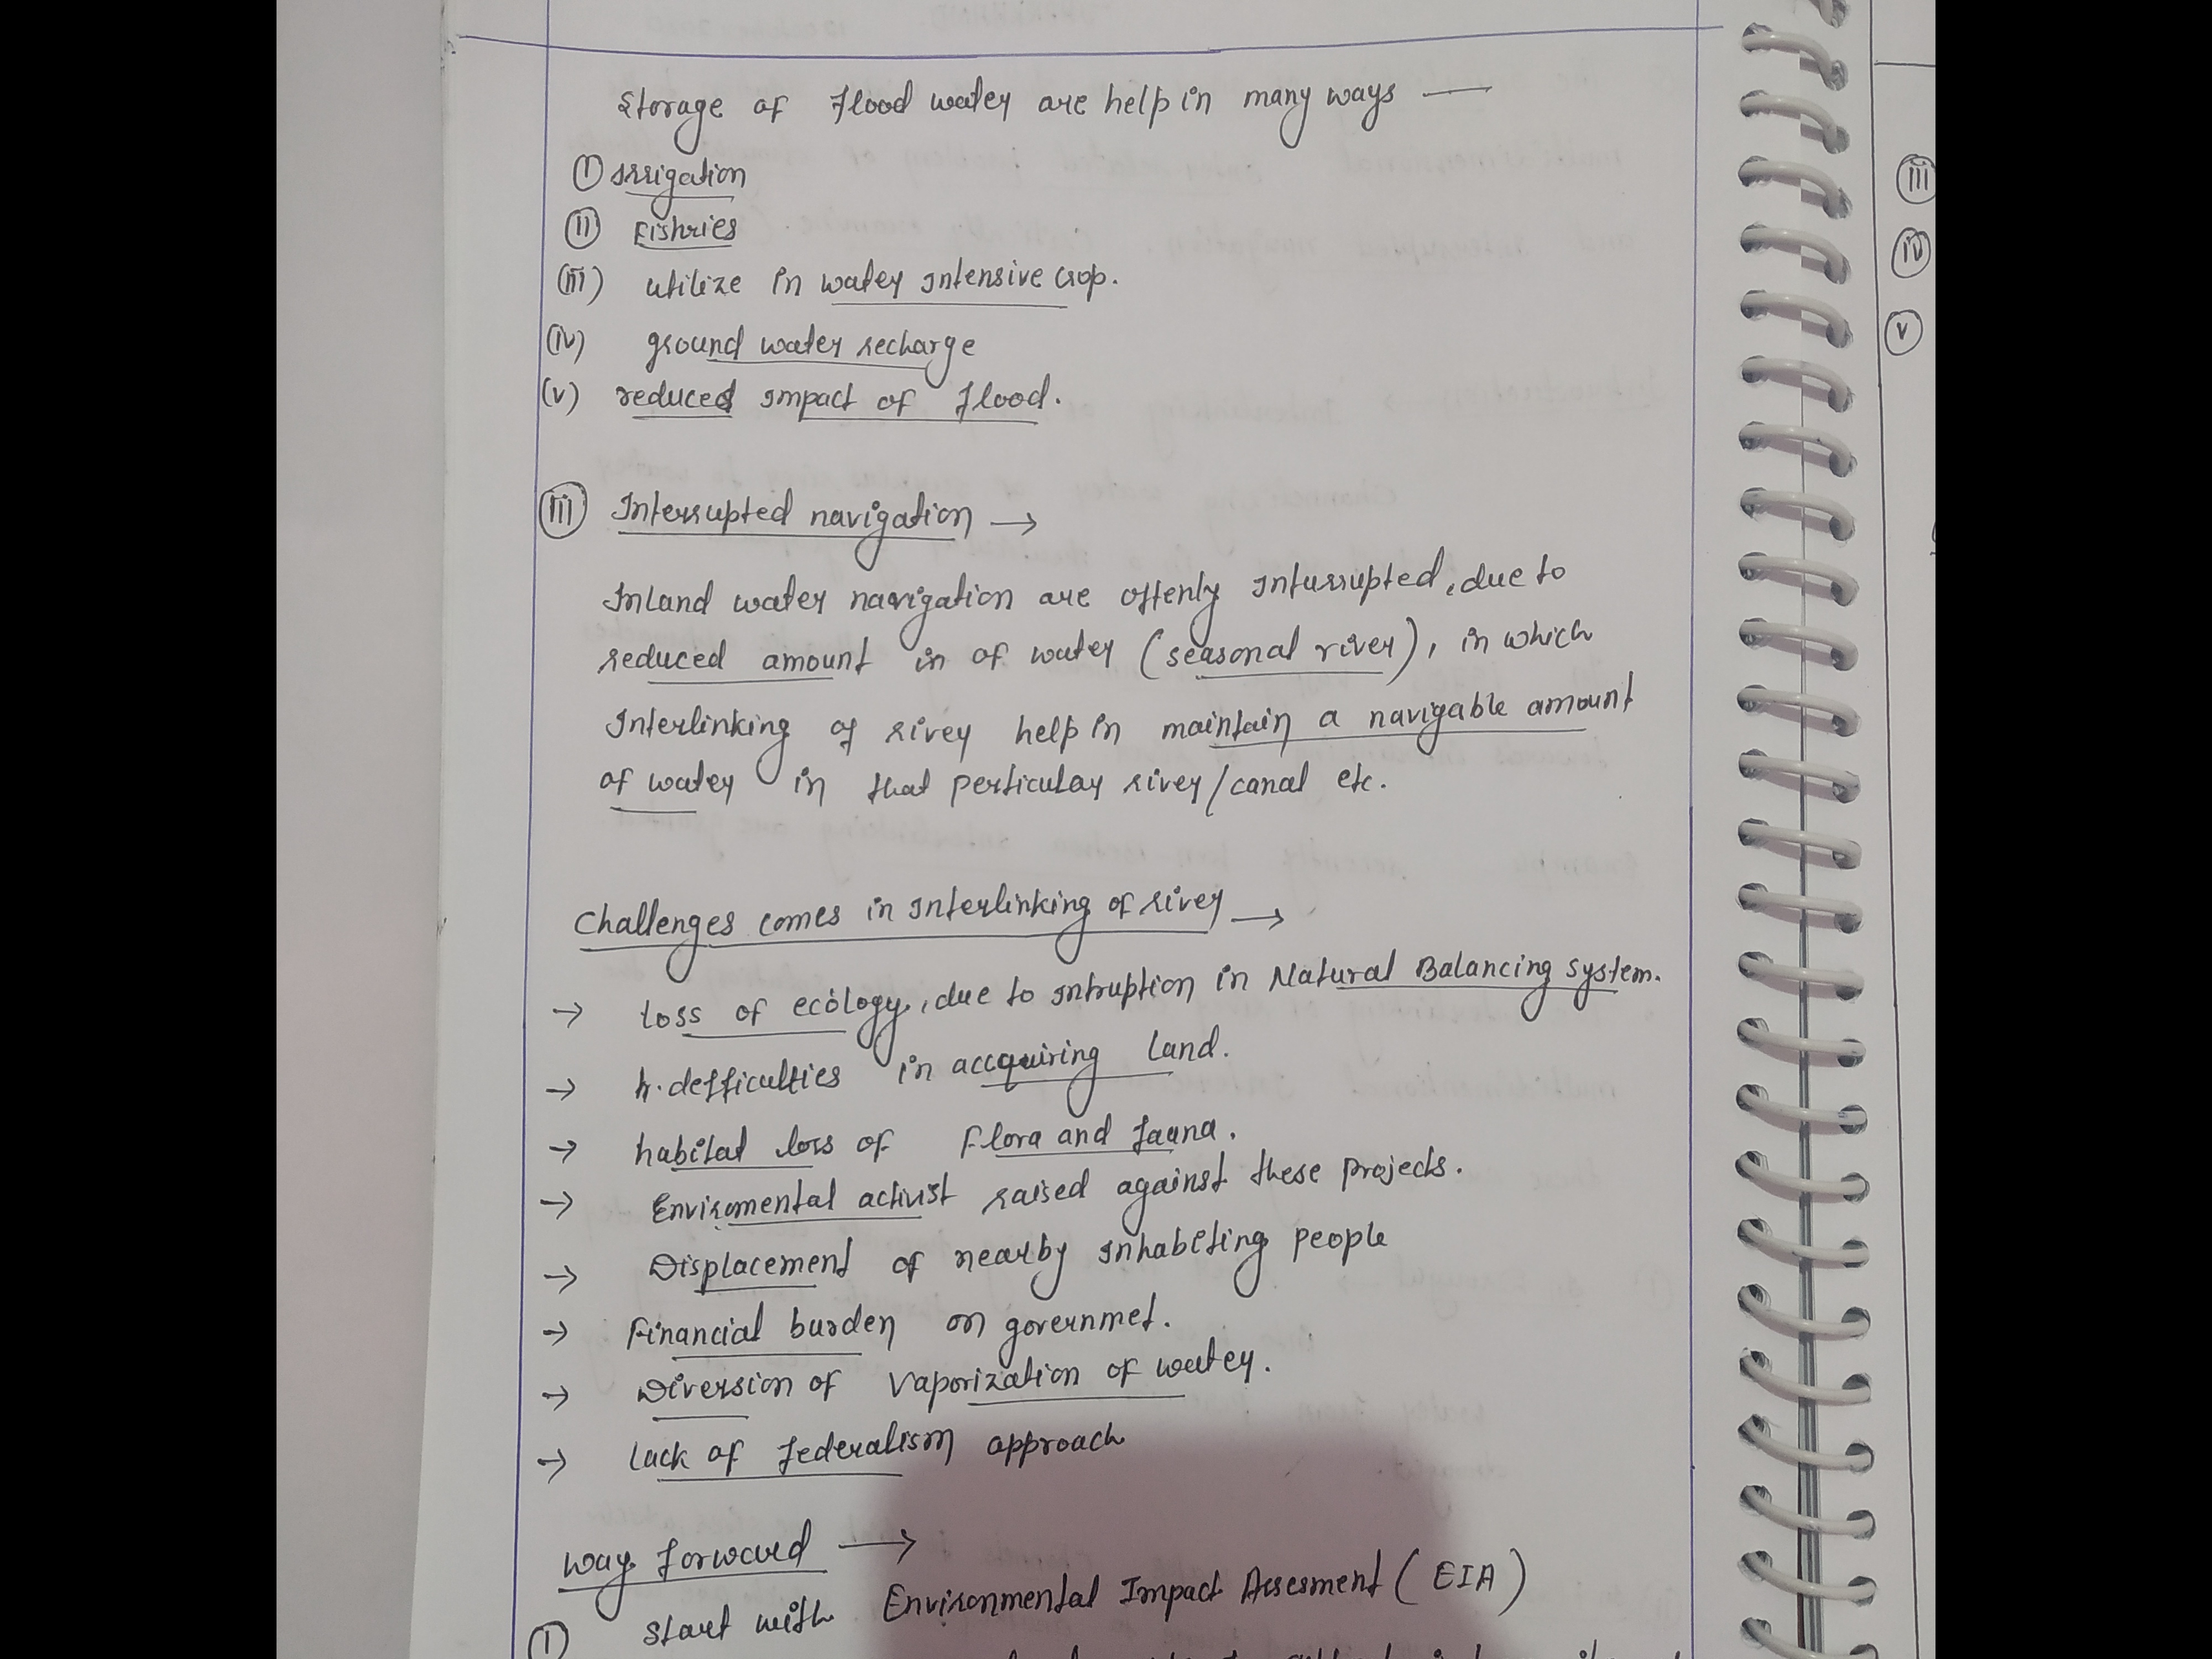 Storage of flood water are help in many ways —
(I) Irrigation
(II) Fishries
(iii) utilize in water intensive crop.
(iv) ground water recharge
(v) reduced impact of flood.
(iii) Interrupted navigation →
Inland water navigation are offenly inturrupted, due to
reduced amount in of water (seasonal river), in which
Interlinking of river help in maintain a navigable amount
of water in that perticular river/canal etc.
Challenges comes in interlinking of river →
→ loss of ecology, due to intruption in Natural Balancing system.
→ defficulties in accquiring land.
→ habitat loss of flora and fauna.
→ Enviromental activist raised against these projects.
→ Displacement of nearby inhabiting people
→ Financial burden on governmet.
→ Diversion of vaporization of water.
→ lack of federalism approach
way forward →
(I) start with Environmental Impact Assesment (EIA)
iii
iv
v